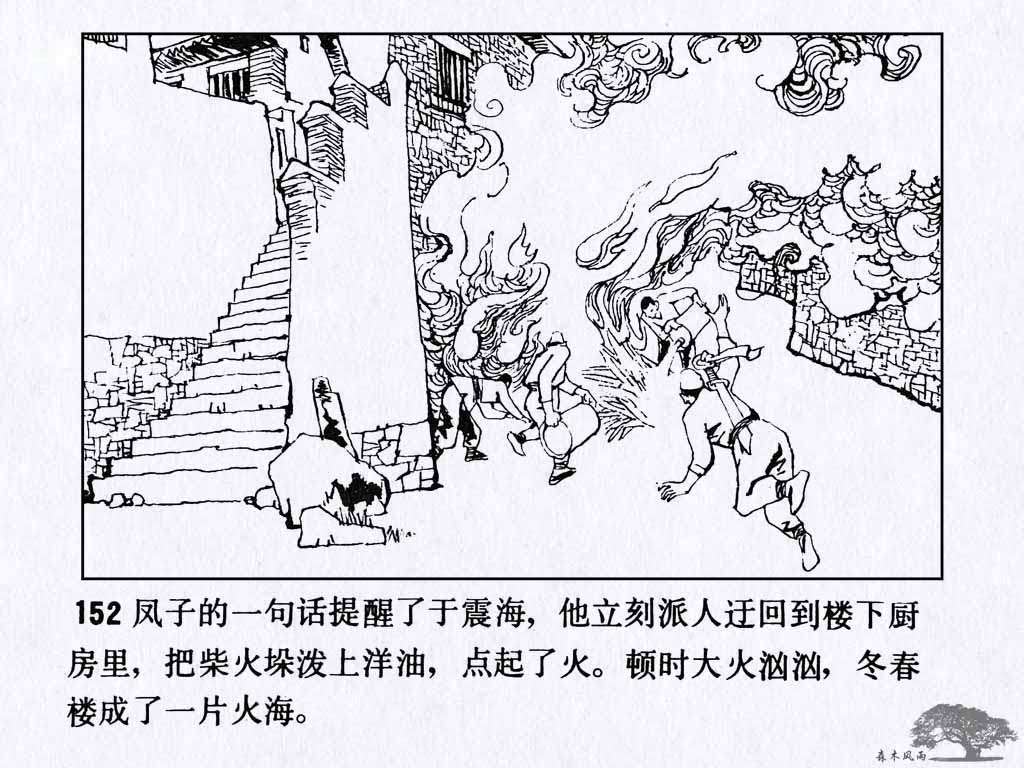 152 凤子的一句话提醒了于震海，他立刻派人迂回到楼下厨
房里，把柴火垛泼上洋油，点起了火。顿时大火汹汹，冬春
楼成了一片火海。
森木风雨